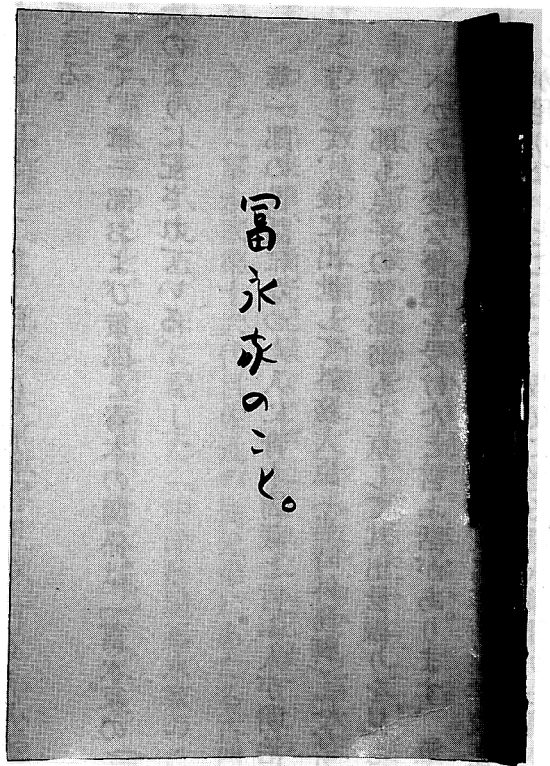 冨永家のこと。